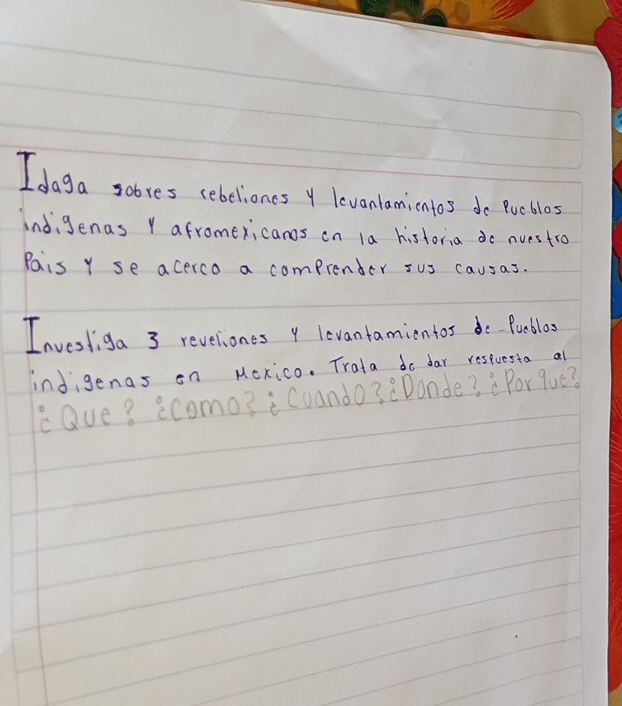 Idaga sobres rebeliones y levantamientos de Pueblos
indigenas Y afromexicanos en la historia de nuestro
Pais Y se acerco a comprender sus causas.
Investiga 3 reveliones y levantamientos de Pueblos
indigenas en Mexico. Trata de dar respuesta al
¿Que? ¿Como? ¿Cuando? ¿Donde? ¿Por que?